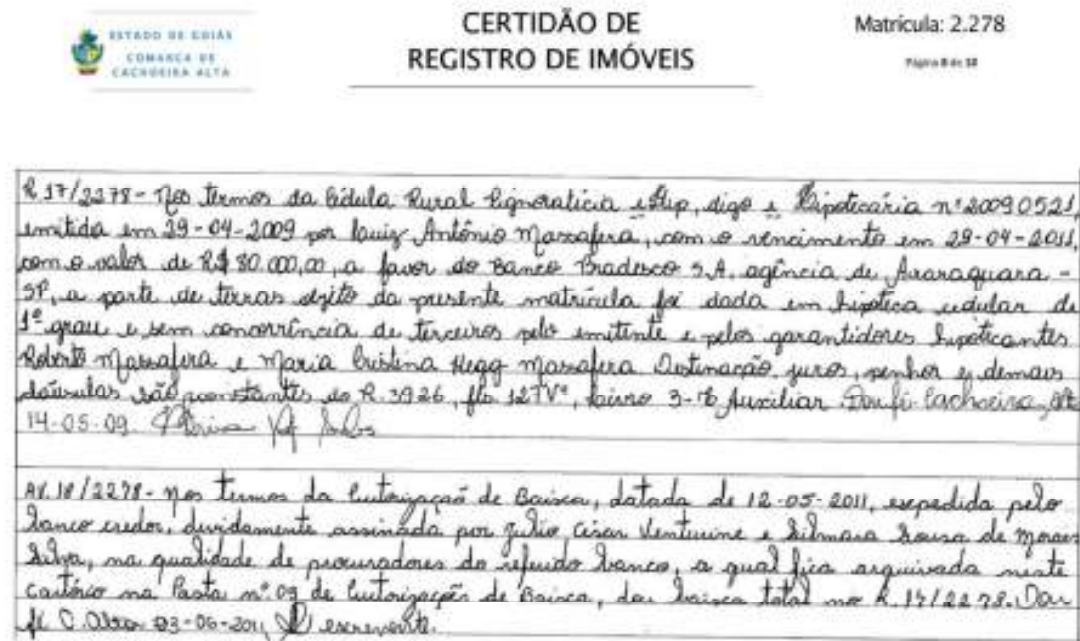 ESTADO DE GOIÁS
COMARCA DE
CACHOEIRA ALTA
CERTIDÃO DE
REGISTRO DE IMÓVEIS
Matrícula: 2.278
Página 8 de
R.17/2278- Nos termos da Cédula Rural Pignoratícia e Hip, digo e Hipotecária nº 20090521,
emitida em 29-04-2009 por Luiz Antônio Massafera, com o vencimento em 29-04-2011,
com o valor de R$ 80.000,00, a favor do Banco Bradesco S.A. agência de Araraquara -
SP, a parte de terras objeto da presente matrícula foi dada em hipoteca cedular de
1º grau e sem concorrência de terceiros pelo emitente e pelos garantidores hipotecantes
Roberto Massafera e Maria Cristina Hegg Massafera Destinação, juros, penhor e demais
cláusulas são constantes do R. 3926, fls 127Vº, Livro 3- Auxiliar Dou fé. Cachoeira Alta
14-05-09.
AV.18/2278- Nos termos da Autorização de Baixa, datada de 12-05-2011, expedida pelo
banco credor, devidamente assinada por Julio César Venturine e Silmara Sousa de Moraes
Silva, na qualidade de procuradores do referido banco, a qual fica arquivada neste
cartório na Pasta nº 09 de Autorizações de Baixa, dou baixa total no R.17/2278. Dou
fé. C. Alta 03-06-2011, escrevente.